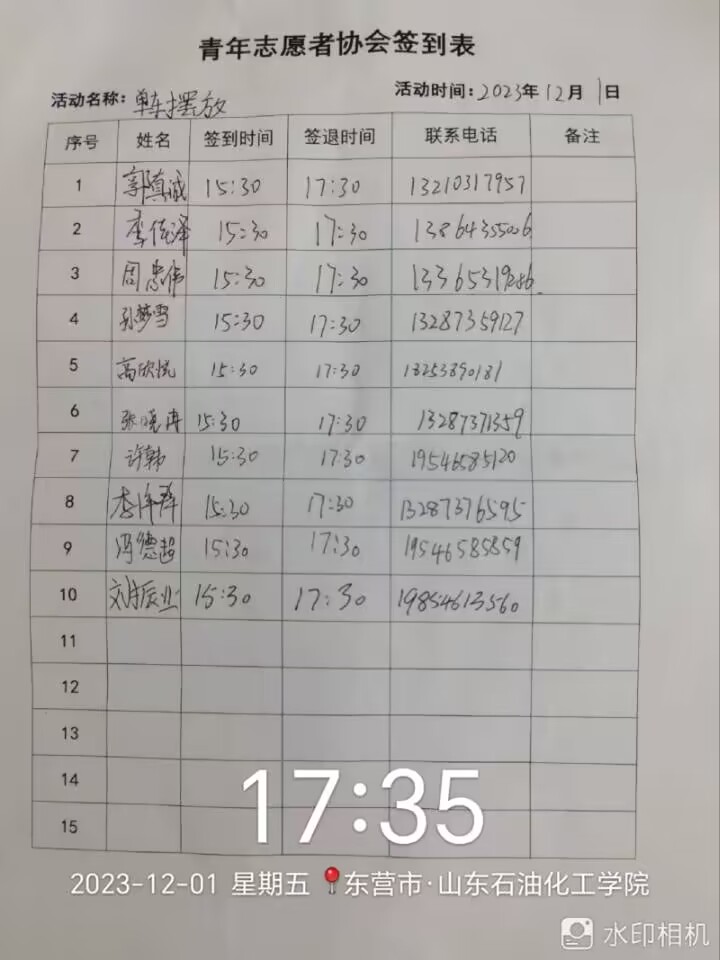 青年志愿者协会签到表
活动名称：单车摆放 活动时间：2023年12月1日
序号 姓名 签到时间 签退时间 联系电话 备注
1 郭真诚 15:30 17:30 13210317957
2 李佳泽 15:30 17:30 13864355006
3 周忠伟 15:30 17:30
4 孙梦雪 15:30 17:30 13287359127
5 高欣悦 15:30 17:30 13253890181
6 张晓冉 15:30 17:30 13287371359
7 许韩 15:30 17:30 19546585120
8 李泽 15:30 17:30 13287376595
9 冯德超 15:30 17:30 19546585859
10 刘振业 15:30 17:30 19854613560
11
12
13
14
15
17:35
2023-12-01 星期五 东营市·山东石油化工学院
水印相机